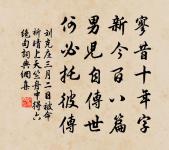 寥昔十年字
新今百八篇
男兒自傳世
何必托彼傳
劉克莊三月二日被命
祈晴上天竺舟中得六
絕句詞典網集